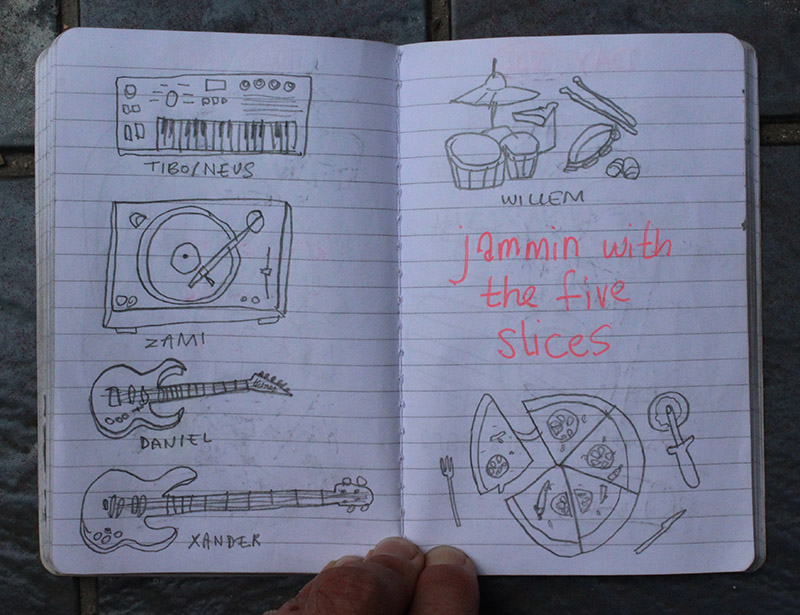 TIBO/NEUS
ZAMI
DANIEL
XANDER
WILLEM
jammin with
the five
slices